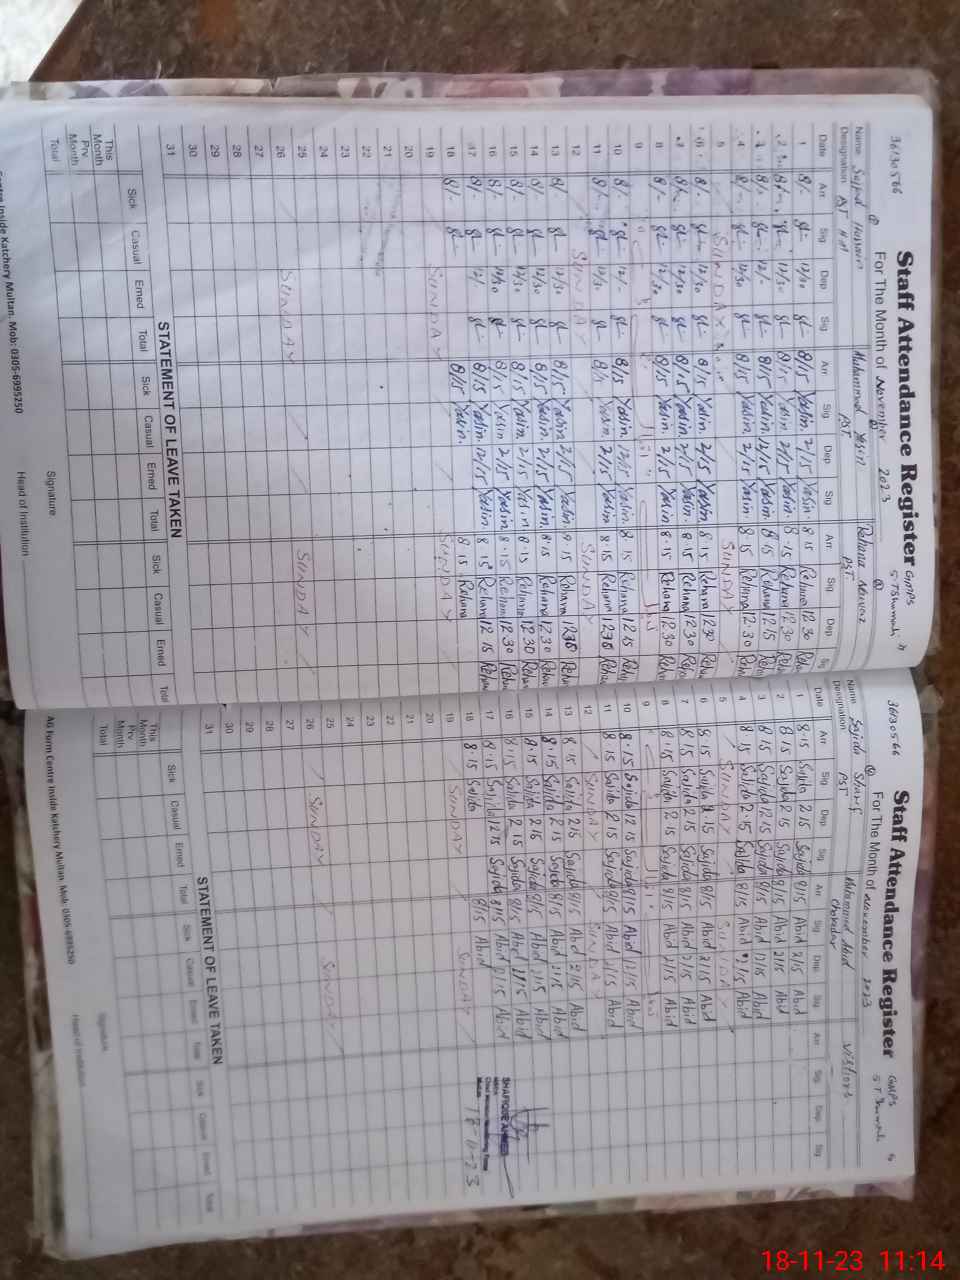 36130566
Staff Attendance Register
GMPS
For The Month of November 2023
Name Sajjad Hussain Muhammad Yasin Rehana Nawaz
Designation PST PST
Date Arr Sig Dep Sig Arr Sig Dep Sig Arr Sig Dep Sig
1 8/- 12/30 8/15 Yasin 2/15 Yasin 8 15 Rehana 12 30
2 12/30 8/15 Yasin 2/15 Yasin 8 15 Rehana 12 30
3 8/- 12/- 8/15 Yasin 12/15 Yasin 8 15 Rehana 12 15
4 8/- 12/30 8/15 Yasin 2/15 Yasin 8 15 Rehana 12 30
5 SUNDAY SUNDAY
6 8/- 12/30 8/15 Yasin 2/15 Yasin 8 15 Rehana 12 30
7 8/- 12/30 8/15 Yasin 2/15 Yasin 8 15 Rehana 12 30
8 8/- 12/30 8/15 Yasin 2/15 Yasin 8 15 Rehana 12 30
9
10 8/- 12/- 8/15 Yasin 12/15 Yasin 8 15 Rehana 12 15
11 8/- 12/30 Yasin 2/15 Yasin 8 15 Rehana 12 30
12 SUNDAY SUNDAY
13 8/- 12/30 8/15 Yasin 2/15 Yasin 15 Rehana 12 30
14 8/- 12/30 8/15 Yasin 2/15 Yasin 8 15 Rehana 12 30
15 8/- 12/30 8/15 Yasin 2/15 Yasin 8 15 Rehana 12 30
16 8/- 12/30 8/15 Yasin 2/15 Yasin 8 15 Rehana 12 30
17 8/- 12/- 8/15 Yasin 12/15 Yasin 8 15 Rehana 12 15
18 8/- 8/15 Yasin 8 15 Rehana
19 SUNDAY SUNDAY
20
21
22
23
24
25
26 SUNDAY SUNDAY
27
28
29
30
31
STATEMENT OF LEAVE TAKEN
Sick Casual Erned Total Sick Casual Erned Total Sick Casual Erned Total
This Month
Prv Month
Total
Signature
Head of Institution
Centre Inside Katchery Multan. Mob: 0305-6995250
36130566
Staff Attendance Register
GMPS
For The Month of November 2023
Name Sajida Sharif Muhammad Abid Visitors
Designation PST Chokidar
Date Arr Sig Dep Sig Arr Sig Dep Sig Arr Sig Dep Sig
1 8 15 Sajida 2 15 Sajida 8/15 Abid 2/15 Abid
2 8 15 Sajida 2 15 Sajida 8/15 Abid 2/15 Abid
3 8 15 Sajida 12 15 Sajida 8/15 Abid 12/15 Abid
4 8 15 Sajida 2 15 Sajida 8/15 Abid 2/15 Abid
5 SUNDAY SUNDAY
6 8 15 Sajida 2 15 Sajida 8/15 Abid 2/15 Abid
7 8 15 Sajida 2 15 Sajida 8/15 Abid 2/15 Abid
8 8 15 Sajida 2 15 Sajida 8/15 Abid 2/15 Abid
9
10 8 15 Sajida 12 15 Sajida 8/15 Abid 12/15 Abid
11 8 15 Sajida 2 15 Sajida 8/15 Abid 2/15 Abid
12 SUNDAY SUNDAY
13 8 15 Sajida 2 15 Sajida 8/15 Abid 2/15 Abid
14 8 15 Sajida 2 15 Sajida 8/15 Abid 2/15 Abid
15 8 15 Sajida 2 15 Sajida 8/15 Abid 2/15 Abid
16 8 15 Sajida 2 15 Sajida 8/15 Abid 2/15 Abid
17 8 15 Sajida 12 15 Sajida 8/15 Abid 12/15 Abid
18 8 15 Sajida 8/15 Abid
SHAFIQUE AHMED
18-11-23
19 SUNDAY SUNDAY
20
21
22
23
24
25
26 SUNDAY SUNDAY
27
28
29
30
31
STATEMENT OF LEAVE TAKEN
Sick Casual Erned Total Sick Casual Erned Total Sick Casual Erned Total
This Month
Prv Month
Total
Signature
Head of Institution
Ad Form Centre Inside Katchery Multan. Mob: 0305-6995250
18-11-23 11:14